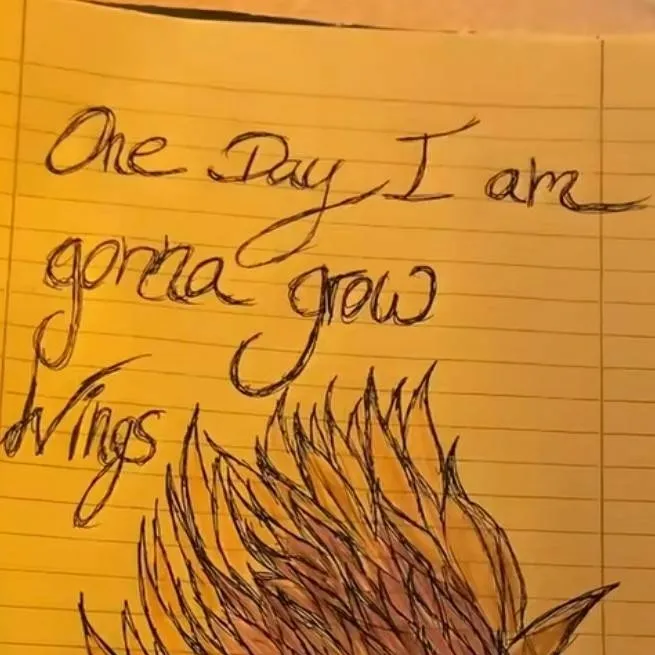 One Day I am
gonna grow
Wings